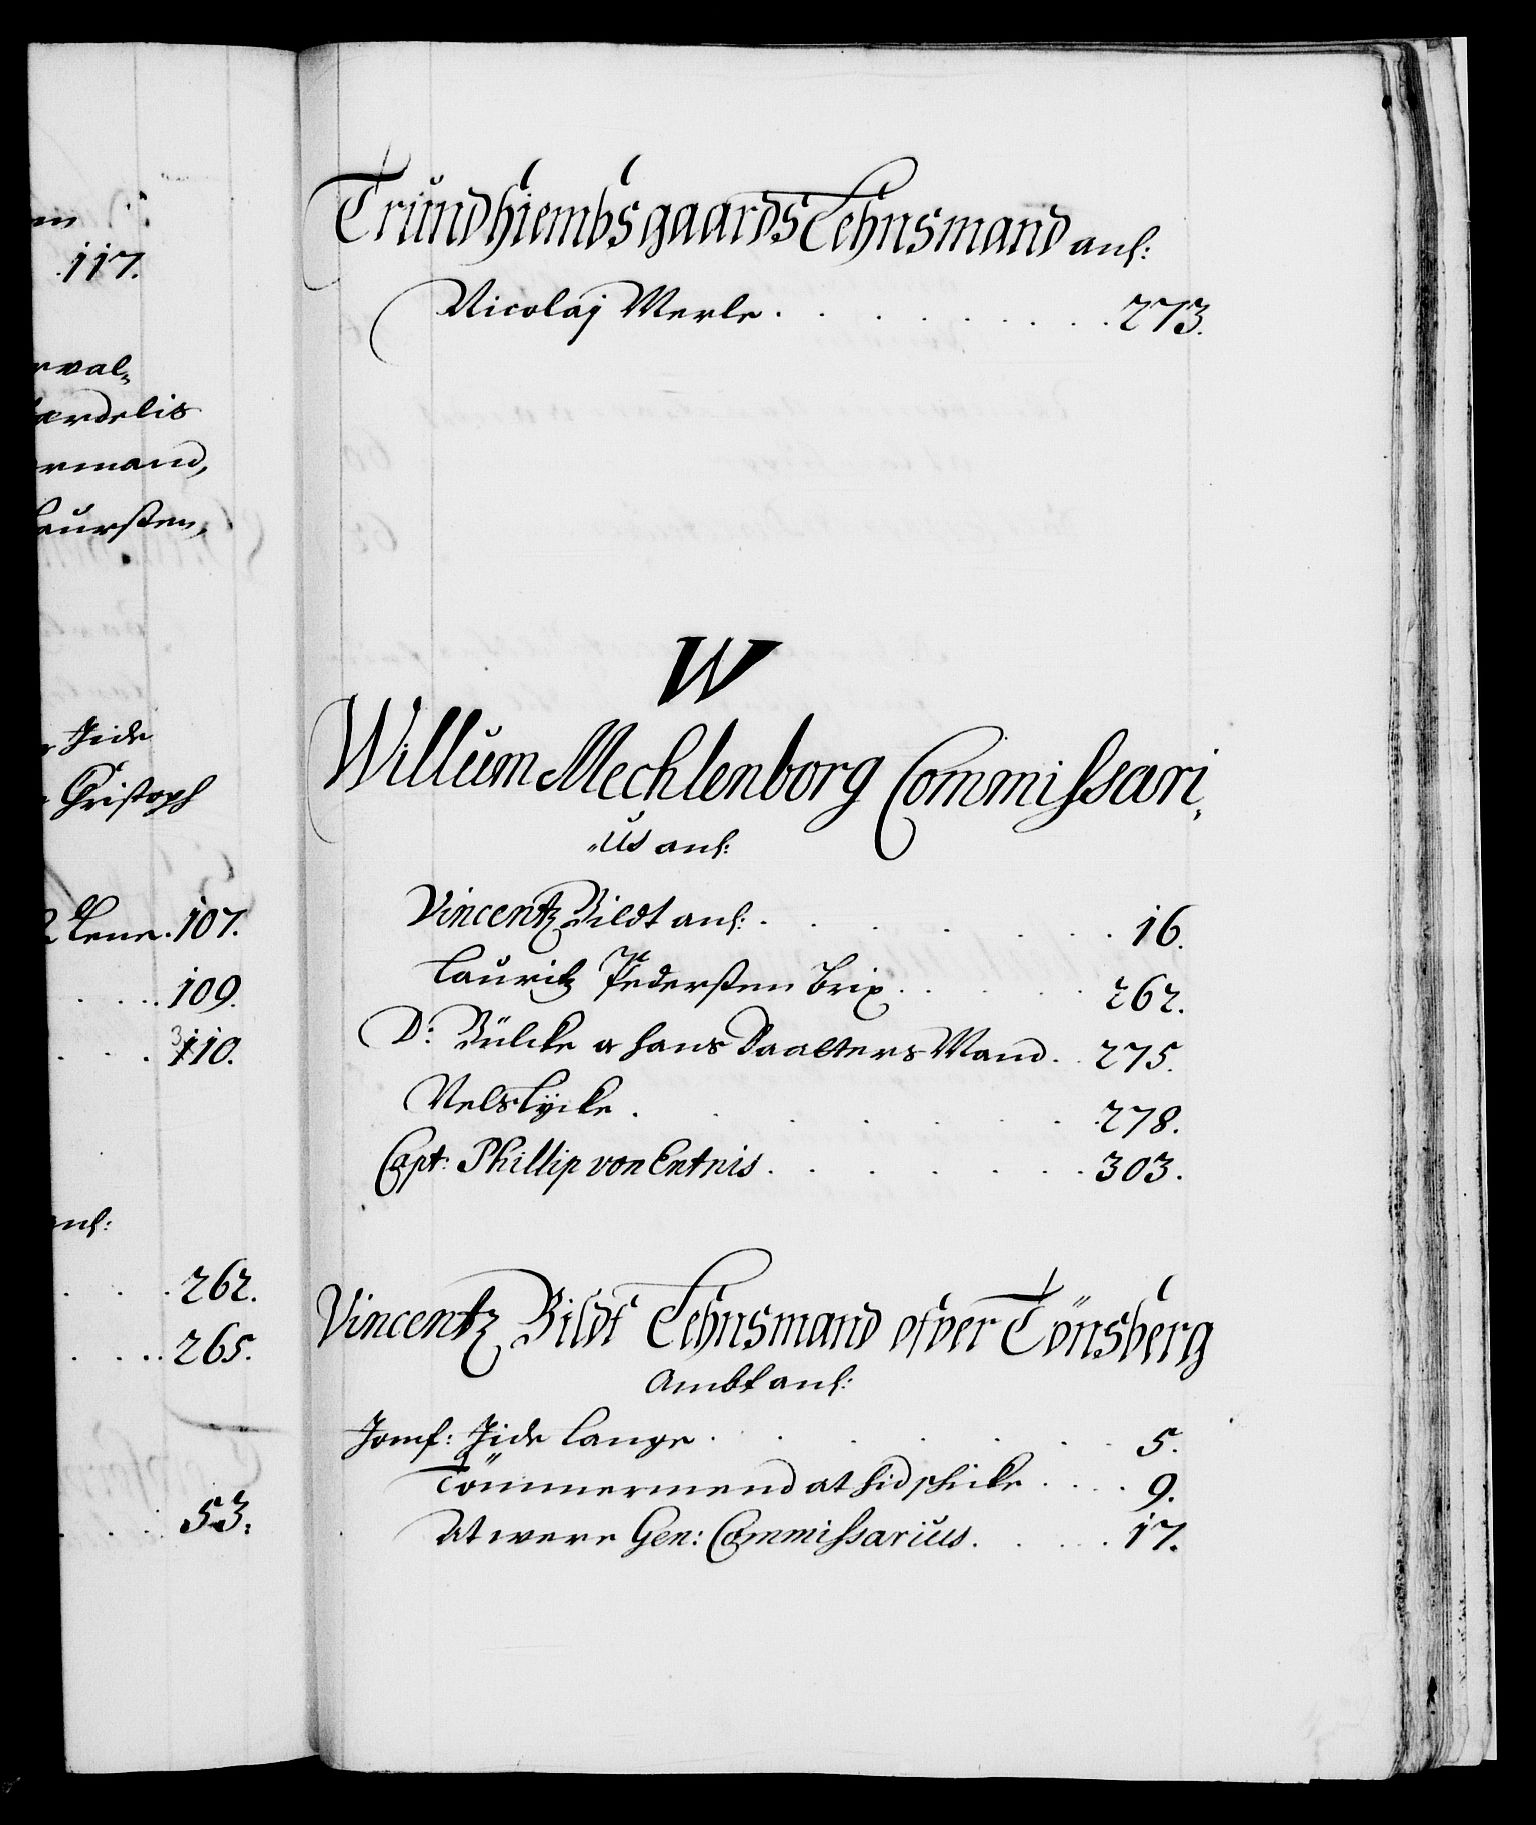 en
117.
rval„
ærdelis
ermand,
Laursten,
Jide
Christoph
Lene. 107.
109.
110.
anl:
262.
265.
53.
Trundhiembs gaards Lehnsmand anl:
Nicolaj Merle . . . . . . . . 273.
W
Willum Mechlenborg Commissari„
„us anl:
Vincentz Bildt anl: . . . . . . 16.
Lauritz Pedersten Brix . . . . 262.
D: Bülche a hans Daalters Mand . . 275.
Nels Lÿcke . . . . . . . 278.
Capt: Phillip von Entnis . . . . . . 303.
Vincentz Bildt Lehnsmand ofver Tönsberg
Ambt anl:
Jomf: Jide Lange . . . . . . 5.
Tömmermend at hid schicke . . . . 9.
At were Gen: Commissarius . . . . 17.